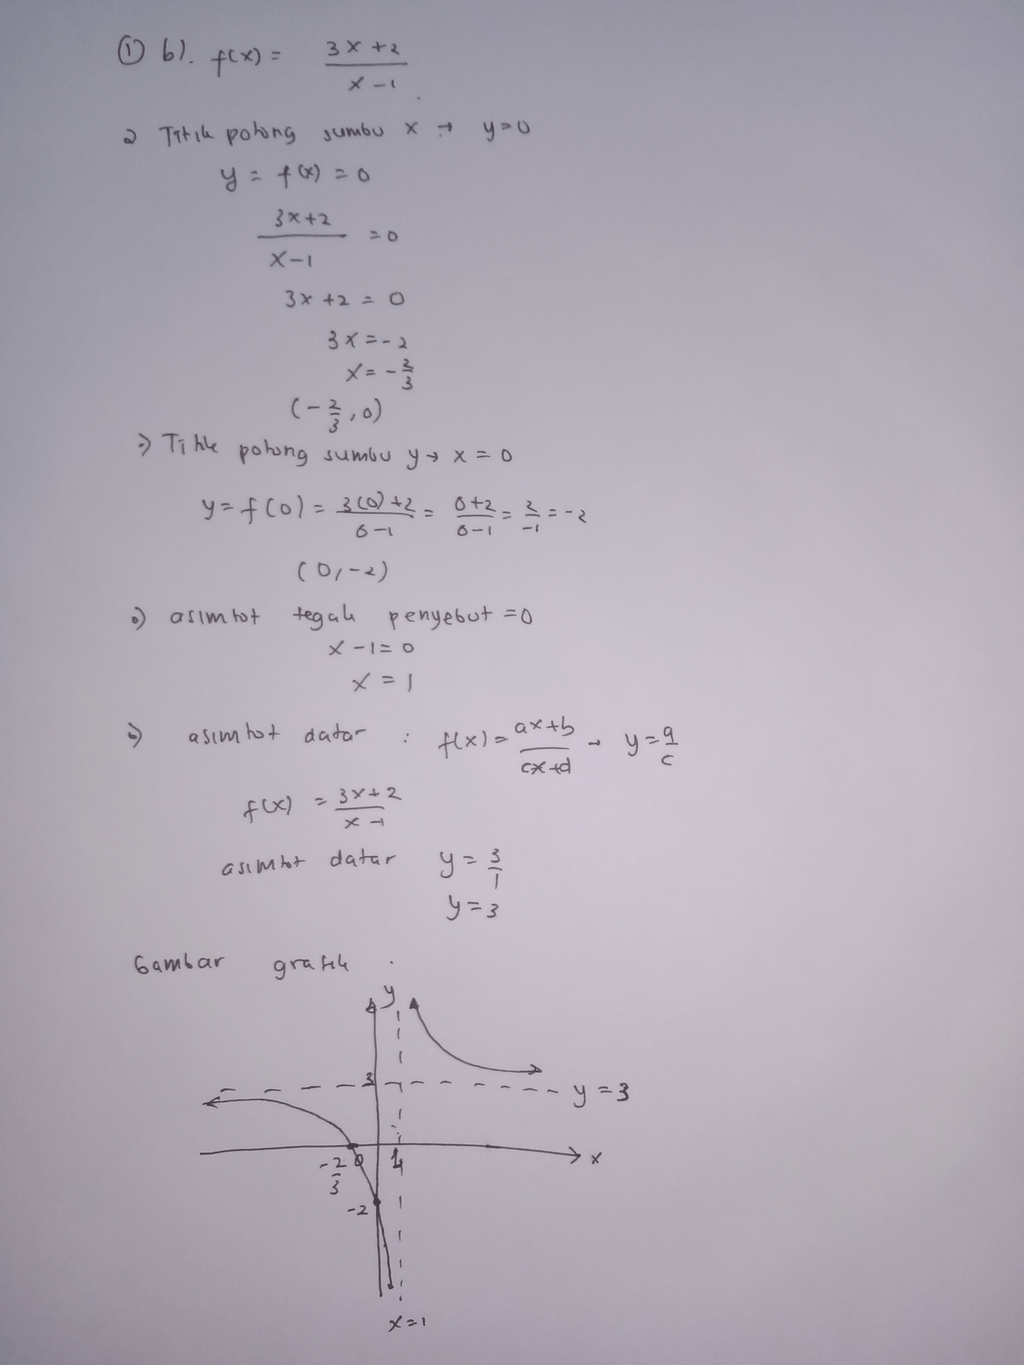 ① b). f(x) = (3x+2)/(x-1)
Titik potong sumbu x → y=0
y = f(x) = 0
(3x+2)/(x-1) = 0
3x+2 = 0
3x = -2
x = -2/3
(-2/3, 0)
Titik potong sumbu y → x = 0
y = f(0) = (3(0)+2)/(0-1) = (0+2)/(0-1) = 2/-1 = -2
(0, -2)
asimtot tegak penyebut = 0
x - 1 = 0
x = 1
asimtot datar : f(x) = (ax+b)/(cx+d) → y = a/c
f(x) = (3x+2)/(x-1)
asimtot datar y = 3/1
y = 3
Gambar grafik
y
3
y = 3
-2/3 0 1 x
-2
x = 1